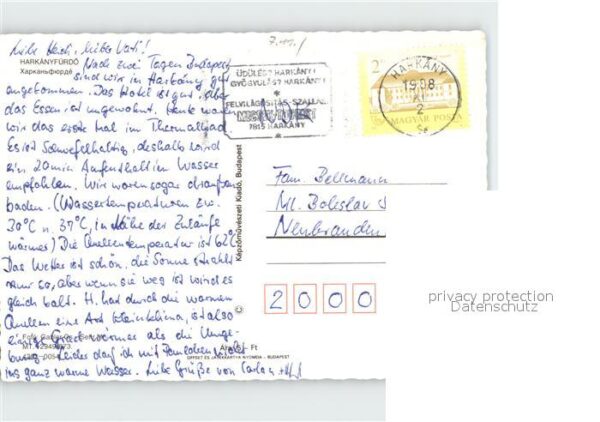 Liebe Heidi, lieber Vati!
HARKÁNYFÜRDŐ
Харканьфюрдё
Nach zwei Tagen Budapest
sind wir in Harkány gut
angekommen. Das Hotel ist gut, aber
das Essen ist ungewohnt. Heute waren
wir das erste Mal im Thermalbad
Es ist Schwefelhaltig, deshalb wird
ein 20min Aufenthalt im Wasser
empfohlen. Wir waren sogar draußen
baden. (Wassertemperaturen zw.
30°C u. 37°C, in Nähe der Zuläufe
wärmer) Die Quellentemperatur ist 62°C
Das Wetter ist schön, die Sonne strahlt
nur so, aber wenn sie weg ist wird es
gleich kalt. H. hat durch die warmen
Quellen eine Art Kleinklima, ist also
einige Grad wärmer als die Umge-
bung. Leider darf ich mit
ins ganz warme Wasser. Liebe Grüße von
ÜDÜLÉST HARKÁNY!
GYÓGYULÁST HARKÁNY!
FELVILÁGOSÍTÁS-SZÁLLÁS
7815 HARKÁNY
HARKÁNY
MAGYAR POSTA
Képzőművészeti Kiadó, Budapest
Fam. Bellmann
Ml. Boleslav
Neubranden
2000
Ft
OFFSET ÉS JÁTÉKKÁRTYA NYOMDA - BUDAPEST
privacy protection
Datenschutz